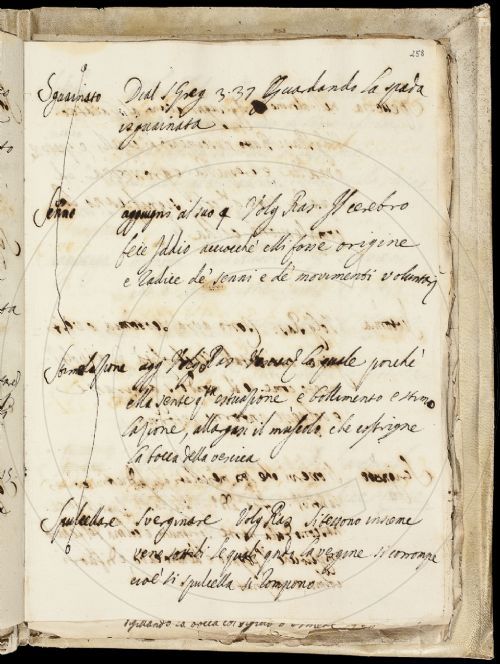 258
Sguainato Dial S Greg 3.37 Guardando la spada
isguainata
Senno aggiugni al suo q Volg Ras. Il cerebro
fece Iddio accioché elli fosse origine
e radice de' senni e de' movimenti voluntarj
Stimolazione agg Volg Ras la quale perché
ella sente qta estuazione e bollimento e stimo
lazione, allarga il muscolo, che costrigne
la bocca della vescica
Spulcellare sverginare Volg Ras Si tessono insieme
vene sottili le quali qnto la vergine si corrompe
cioè si spulcella si rompono